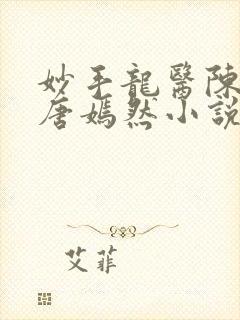 妙手龍醫陳
唐嫣然小說
艾菲